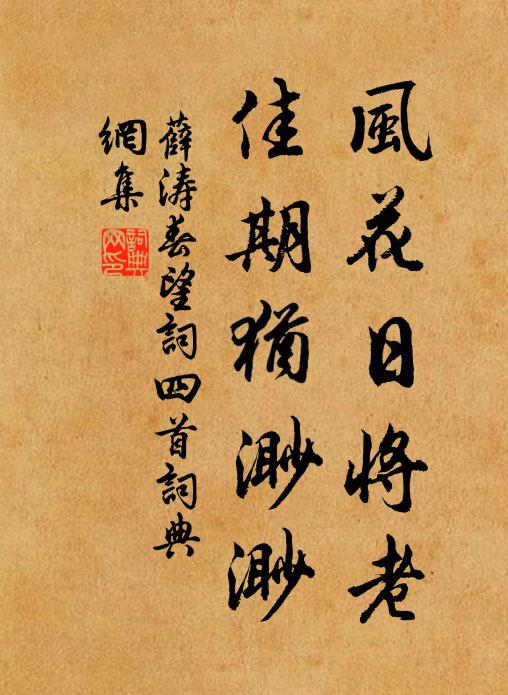 風花日將老
佳期猶渺渺
薛濤春望詞四首詞典
網集
詞典
网印